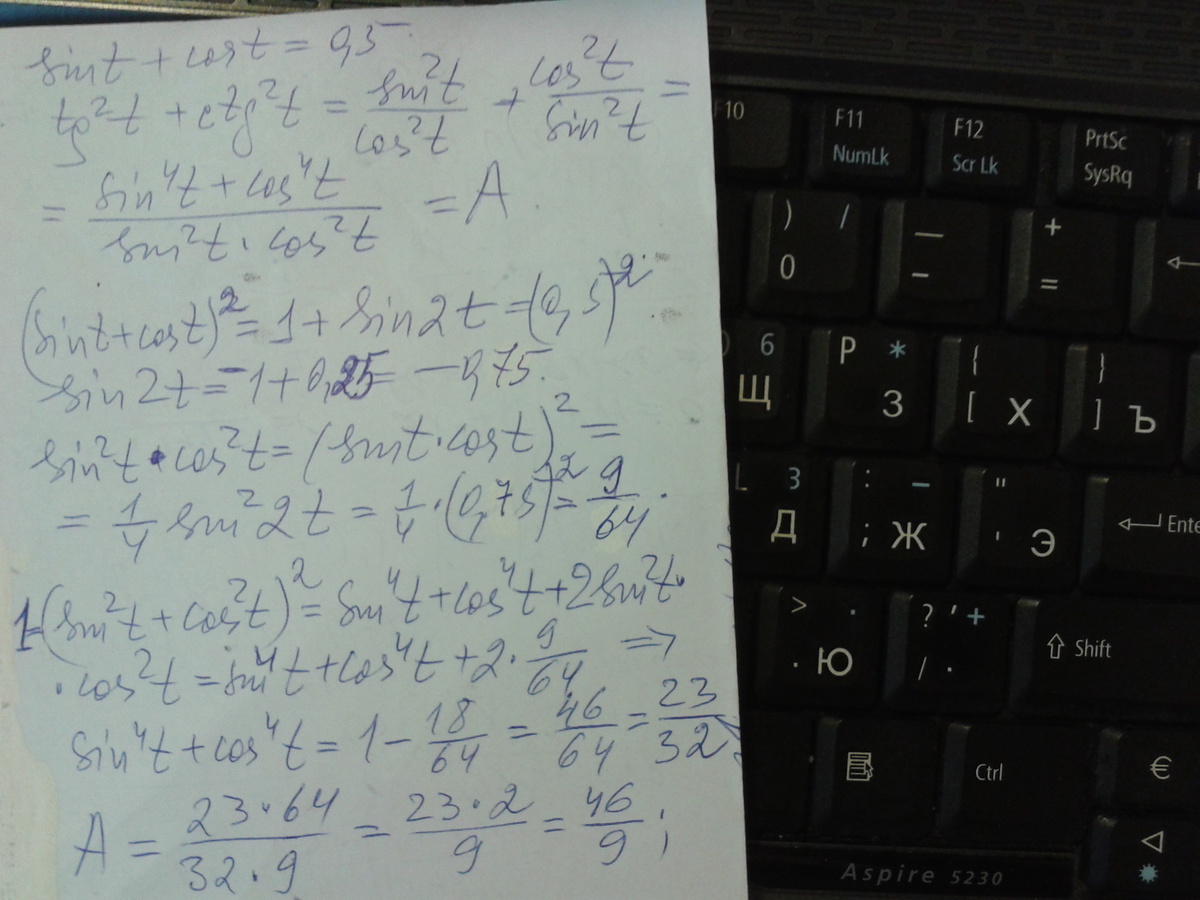 sint + cost = 0,5
tg²t + ctg²t = sin²t/cos²t + cos²t/sin²t =
= (sin⁴t + cos⁴t)/(sin²t · cos²t) = A
(sint + cost)² = 1 + sin2t = (0,5)²
sin2t = -1 + 0,25 = -0,75.
sin²t · cos²t = (sint · cost)² =
= 1/4 sin²2t = 1/4 · (0,75)² = 9/64 .
1=(sin²t + cos²t)² = sin⁴t + cos⁴t + 2sin²t ·
· cos²t = sin⁴t + cos⁴t + 2 · 9/64 ⇒
sin⁴t + cos⁴t = 1 - 18/64 = 46/64 = 23/32
A = (23 · 64)/(32 · 9) = (23 · 2)/9 = 46/9 ;
F10
F11 NumLk
F12 Scr Lk
PrtSc SysRq
) / 0
— -
+ =
6 Щ
Р * З
{ [ Х
} ] Ъ
L 3 Д
: - ; Ж
" ' Э
Ente
> . . Ю
? ' + / .
Shift
Ctrl
€
Aspire 5230